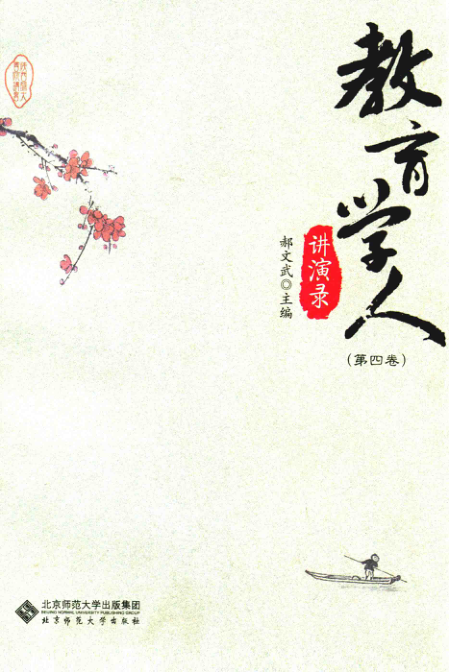 教育学人
讲演录
郝文武◎主编
(第四卷)
北京师范大学出版集团
BEIJING NORMAL UNIVERSITY PUBLISHING GROUP
北京师范大学出版社